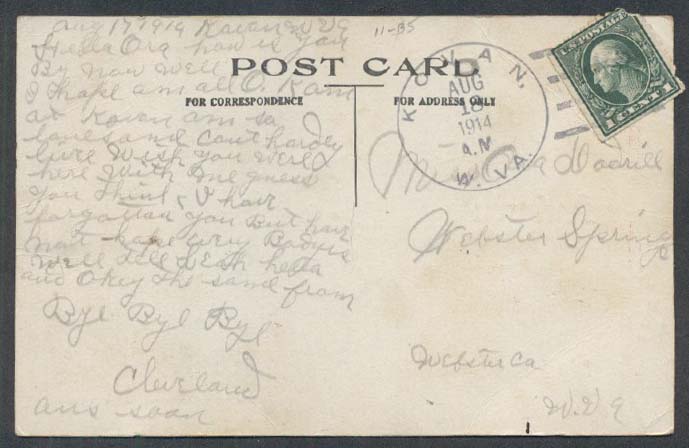 Aug 17 1914 Kovan W Va
Hello Ora how is you
By now well
I hope am all O.K am
at Kovan am so
lonesome cant hardly
live Wish you were
here With me guess
you think I have
forgotton you But have
not hope every Bodys
Well tell Leah hello
and Okey the same from
Bye Bye Bye
Cleveland
ans soon
11-B5
POST CARD
FOR CORRESPONDENCE
FOR ADDRESS ONLY
KOVAN,
AUG
18
1914
A.M
W. VA.
U.S. POSTAGE
1 CENT 1
Miss Ora Dodrill
Webster Springs
Webster Co
W. Va